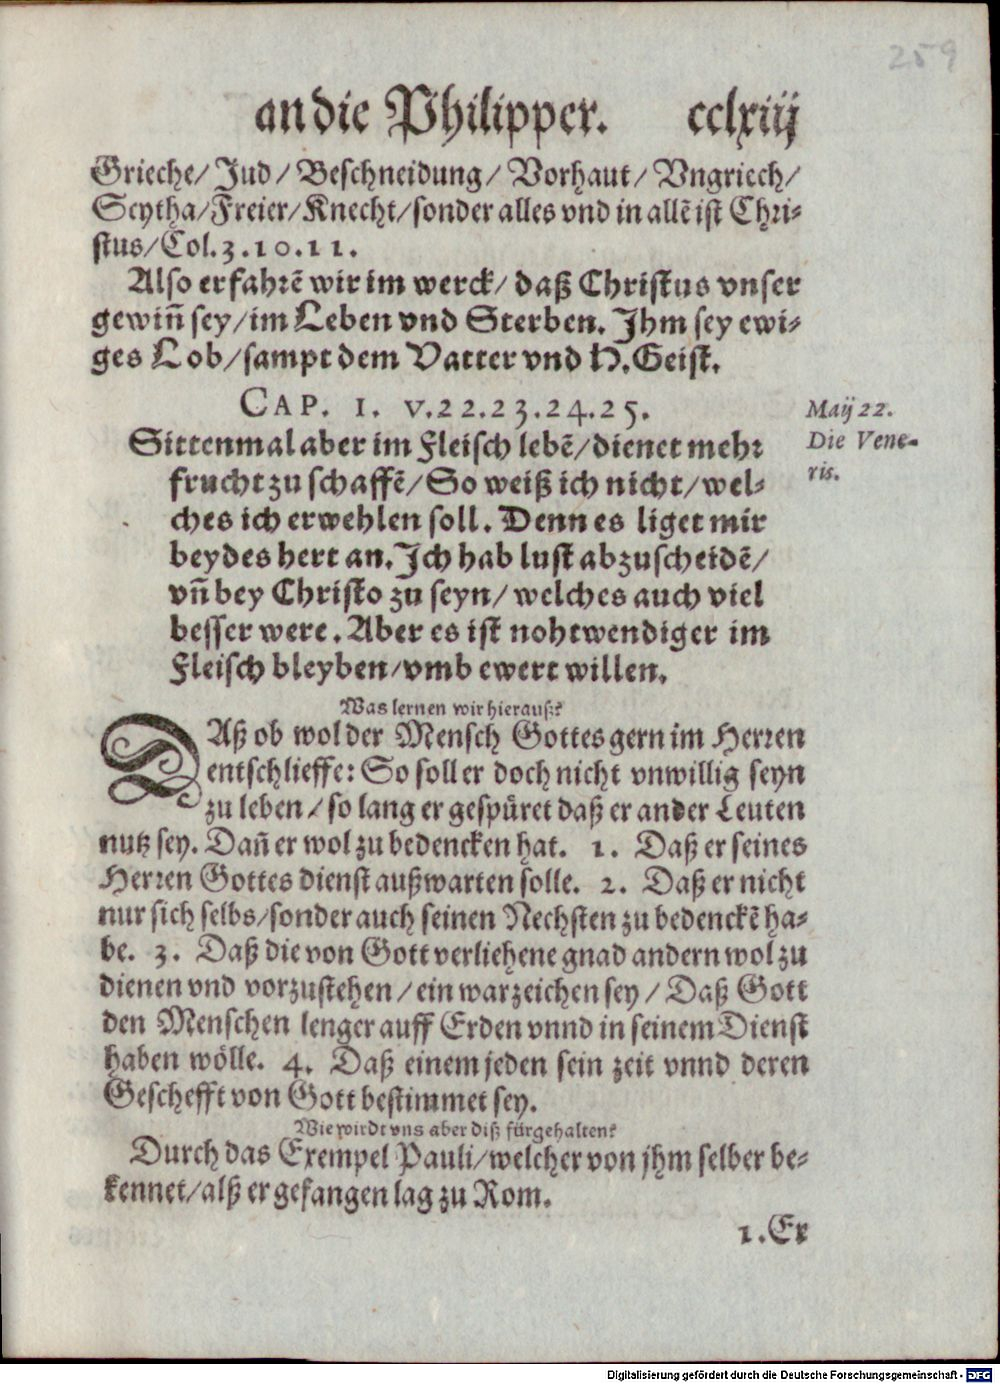 259
an die Philipper. cclxiij
Grieche/ Jud/ Beschneidung/ Vorhaut/ Vngriech/
Scytha/Freier/Knecht/sonder alles vnd in allē ist Chri-
stus/Col.3.10.11.
Also erfahrē wir im werck/ daß Christus vnser
gewiñ sey/im Leben vnd Sterben. Ihm sey ewi-
ges Lob/sampt dem Vatter vnd H.Geist.
CAP. I. v.22.23.24.25.
Maij 22.
Die Vene-
ris.
Sittenmal aber im Fleisch lebē/dienet mehr
frucht zu schaffē/So weiß ich nicht/wel-
ches ich erwehlen soll. Denn es liget mir
beydes hert an. Ich hab lust abzuscheidē/
vñ bey Christo zu seyn/ welches auch viel
besser were. Aber es ist nohtwendiger im
Fleisch bleyben/vmb ewert willen.
Was lernen wir hierauß?
DAß ob wol der Mensch Gottes gern im Herren
entschlieffe: So soll er doch nicht vnwillig seyn
zu leben/ so lang er gespüret daß er ander Leuten
nutz sey. Dañ er wol zu bedencken hat. 1. Daß er seines
Herren Gottes dienst außwarten solle. 2. Daß er nicht
nur sich selbs/sonder auch seinen Nechsten zu bedenckē ha-
be. 3. Daß die von Gott verliehene gnad andern wol zu
dienen vnd vorzustehen/ein warzeichen sey/ Daß Gott
den Menschen lenger auff Erden vnnd in seinem Dienst
haben wölle. 4. Daß einem jeden sein zeit vnnd deren
Geschefft von Gott bestimmet sey.
Wie wirdt vns aber diß fürgehalten?
Durch das Exempel Pauli/welcher von jhm selber be-
kennet/alß er gefangen lag zu Rom.
1.Er
Digitalisierung gefördert durch die Deutsche Forschungsgemeinschaft - DFG